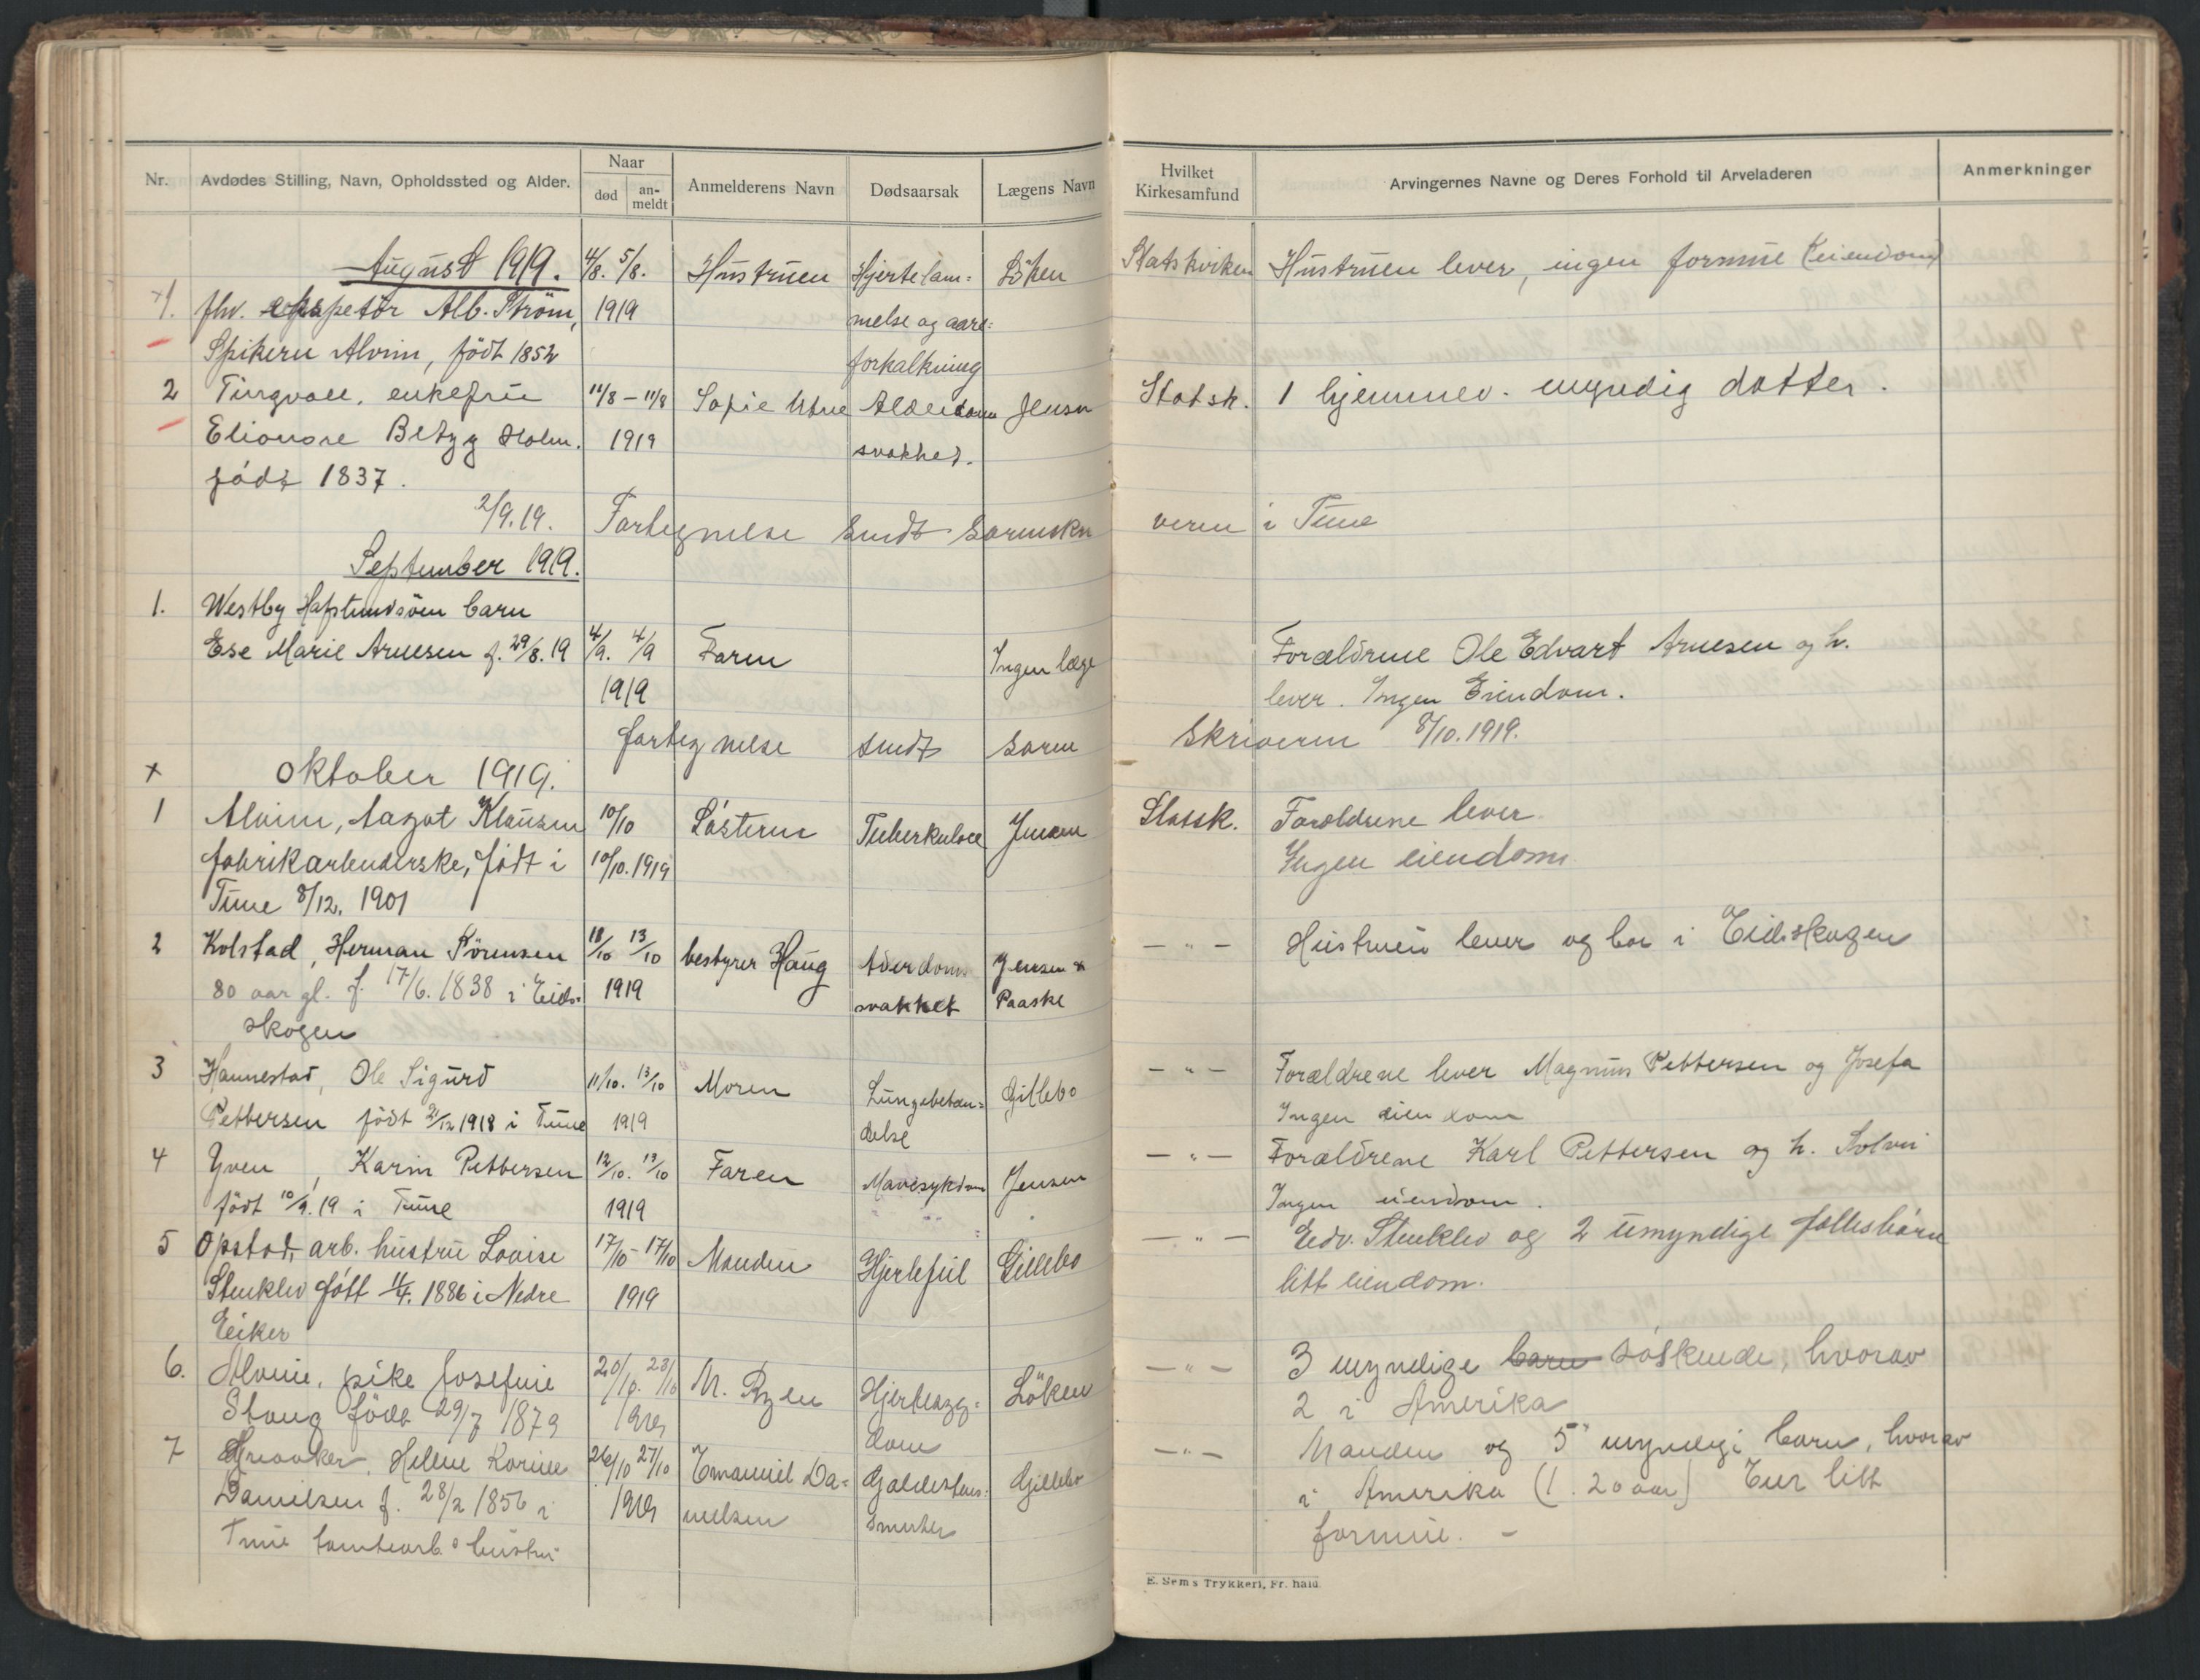 Nr.
Avdødes Stilling, Navn, Opholdssted og Alder.
Naar
død
an-
meldt
Anmelderens Navn
Dødsaarsak
Lægens Navn
Hvilket
Kirkesamfund
Arvingernes Navne og Deres Forhold til Arveladeren
Anmerkninger
August 1919. 4/8. 5/8. Hustruen Hjertelam= Löken Statskirken Hustruen lever, ingen formue (eiendom)
1. fhv. Alb. Ström, 1919 melse og aare=
Spikeru Alvim, födt 1852 forkalkning
2 Tingvoll, enkefru 11/8 - 11/8 Sofie Utne Alderdoms Jensen Statsk. 1 hjemmev. myndig datter.
Elionore Betzy Holm. 1919 svakhet.
födt 1837.
2/9.19. Fortegnelse sendt sorenskri veren i Tune
September 1919.
1. Westby Hafslundsöen barn
Ese Marie Arnesen f. 29/8.19 4/9. 4/9 Faren Ingen læge Forældrene Ole Edvart Arnesen og h.
1919 lever. Ingen Eiendom.
fortegnelse sendt soren skriveren 8/10.1919.
x Oktober 1919.
1 Alvim, Aagot Klausen 10/10 Sösteren Tuberkulose Jensen Statsk. Forældrene lever
fabrikarbeiderske, födt i 10/10.1919 Ingen eiendom
Tune 8/12. 1901
2 Kolstad, Herman Sörensen 10/10 13/10 bestyrer Haug Alderdoms Jensen & — " — Hustruen lever og bor i Eidskogen
80 aar gl. f. 17/6. 1838 i Eids= 1919 svakhet Paaske
skogen
3 Hannestad, Ole Sigurd 11/10. 13/10 Moren Lungebetæn= Gillebo — " — Forældrene lever Magnus Pettersen og Josefa
Pettersen födt 21/12 1918 i Tune 1919 delse Ingen eiendom
4 Yven, Karin Pettersen 12/10. 13/10 Faren Mavesykdom Jensen — " — Forældrene Karl Pettersen og h. Solvei
födt 10/9.19 i Tune 1919 Ingen eiendom.
5 Opstad, arb. hustru Lovise 17/10 - 17/10 Manden Hjertefeil Gillebo — " — Edv. Stenklev og 2 umyndige fællesbörn
Stenklev födt 11/4. 1886 i Nedre 1919 litt eiendom.
Eiker
6. Alvim, pike Josefine 20/10. 23/10 M. Ryen Hjertesyg= Löken — " — 3 myndige barn söskende, hvorav
Stang födt 29/7 1879 1919 dom 2 i Amerika
7 Greaaker, Helene Karine 26/10 27/10 Emanuel Da= Galdestens= Gillebo — " — Manden og 5 myndige barn, hvorav
Danielsen f. 28/2 1856 i 1919 nielsen smerter i Amerika (1. 20 aar) Eier litt
Tune tomtearb. hustru formue. -
E. Sem's Trykkeri, Fr.hald.